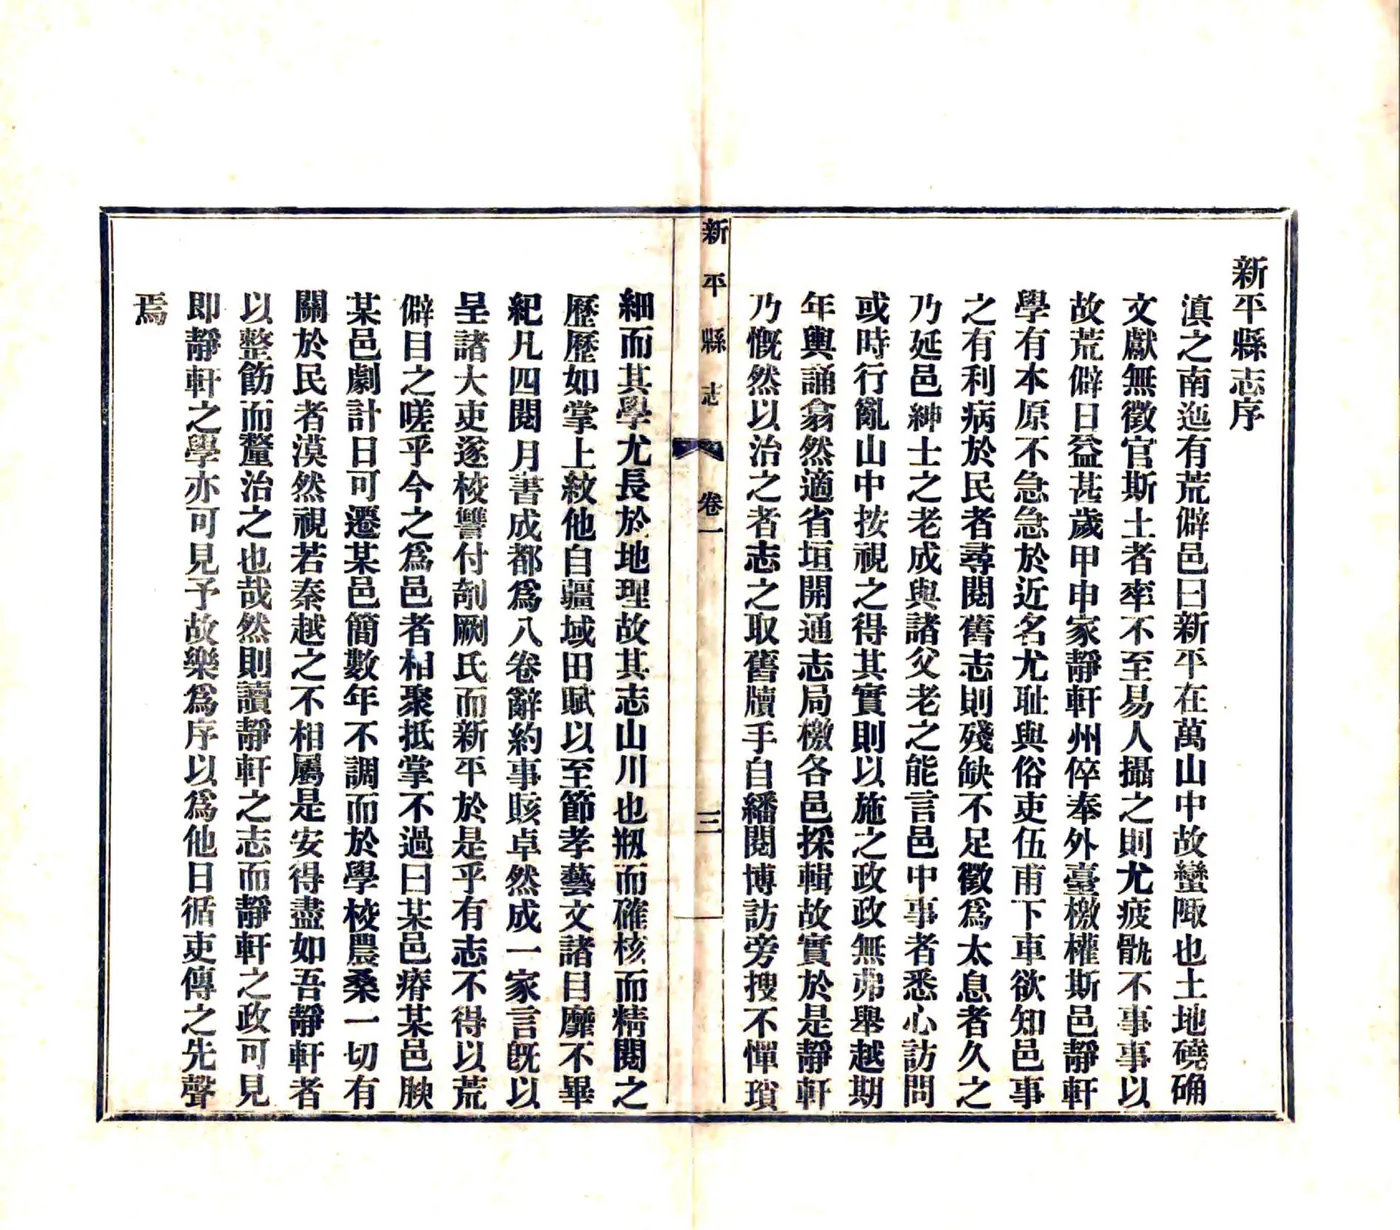 新平縣志序
滇之南迤有荒僻邑曰新平在萬山中故蠻陬也土地磽确
文獻無徵官斯土者率不至易人攝之則尤疲骫不事事以
故荒僻日益甚歲甲申家靜軒州倅奉外臺檄權斯邑靜軒
學有本原不急急於近名尤耻與俗吏伍甫下車欲知邑事
之有利病於民者尋閱舊志則殘缺不足徵為太息者久之
乃延邑紳士之老成與諸父老之能言邑中事者悉心訪問
或時行亂山中按視之得其實則以施之政政無弗舉越期
年輿誦翕然適省垣開通志局檄各邑採輯故實於是靜軒
乃慨然以治之者志之取舊牘手自繙閱博訪旁搜不憚瑣
新平縣志 卷一 三
細而其學尤長於地理故其志山川也瓶而確核而精閱之
歷歷如掌上紋他自疆域田賦以至節孝藝文諸目靡不畢
紀凡四閱月書成都為八卷辭約事賅卓然成一家言旣以
呈諸大吏遂校讐付剞劂氏而新平於是乎有志不得以荒
僻目之嗟乎今之為邑者相聚抵掌不過曰某邑瘠某邑腴
某邑劇計日可遷某邑簡數年不調而於學校農桑一切有
關於民者漠然視若秦越之不相屬是安得盡如吾靜軒者
以整飭而釐治之也哉然則讀靜軒之志而靜軒之政可見
即靜軒之學亦可見予故樂為序以為他日循吏傳之先聲
焉